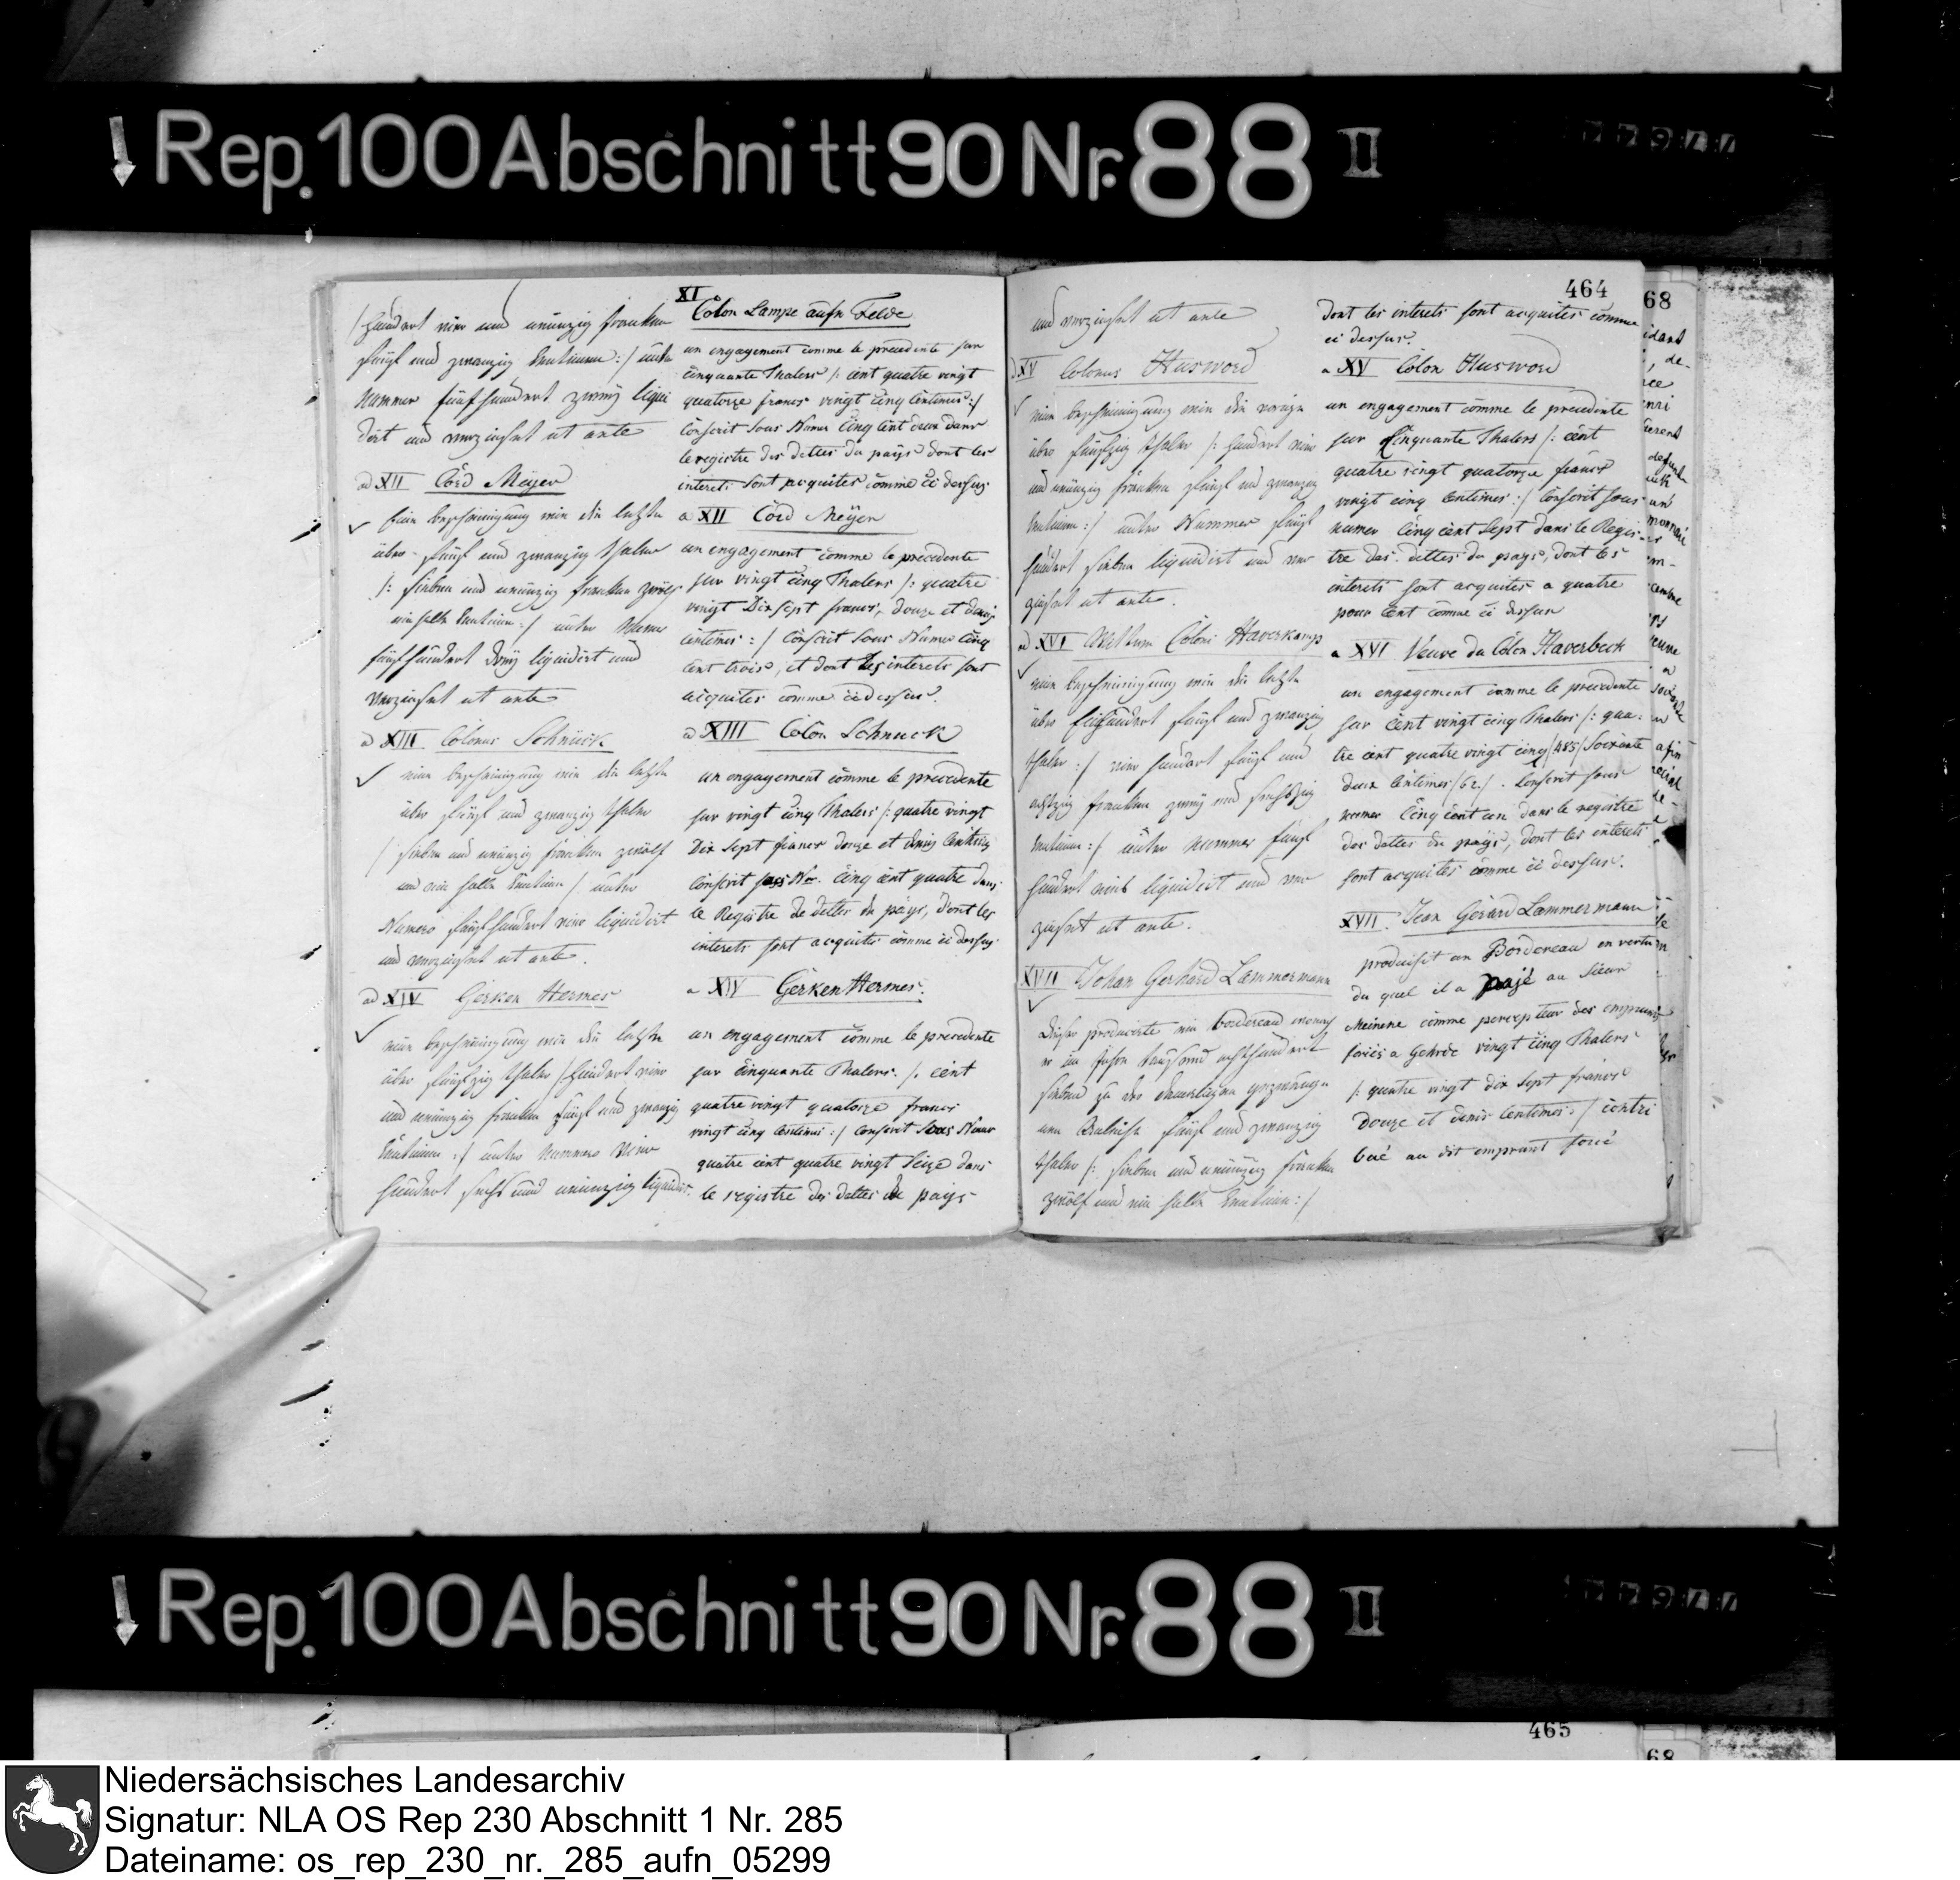 Rep. 100 Abschnitt 90 Nr. 88 II
/ hundert vier und neunzig franken
fünf und zwanzig Centimen :/ unter
Nummer fünfhundert zwey liqui
dirt und verzinset ut ante
ad XII Cörd Meyer
eine bescheinigung wie die letzte
über fünf und zwanzig thaler
/: sieben und neunzig franken zwölf
ein halbe Centimen :/ unter Numer
fünfhundert drey liquidirt und
verzinset ut ante
ad XIII Colonus Schnuck
eine bescheinigung wie die letzte
über fünf und zwanzig thaler
/ sieben und neunzig franken zwölf
und ein halbe Centimen / unter
Numero fünfhundert vier liquidirt
und verzinset ut ante.
ad XIV Gerken Hermes
eine bescheinigung wie die letzte
über fünfzig thaler / hundert vier
und neunzig franken fünf und zwanzig
Centimen :/ unter Nummero vier
hundert sechs und neunzig liquidir
XI Colon Lampe aufn Felde
un engagement comme le precedente sur
cinquante Thalers /: cent quatre vingt
quatorze francs vingt cinq Centimes :/
Conscrit sous Numer Cinq cent deux dans
le registre des dettes du pays dont les
interets sont acquites comme ci dessus
a XII Cörd Meÿer
un engagement comme le precedente
sur vingt cinq Thalers /: quatre
vingt Dix sept francs, douze et demi
centimes :/ Conscrit sous Numer Cinq
cent trois, et dont les interets sont
acquites comme ci dessus.
a XIII Colon Schnuck
un engagement comme le precedente
sur vingt cinq Thalers /: quatre vingt
Dix sept francs douze et demi Centimes
Conscrit sous Nr. Cinq cent quatre dans
le Registre de dettes du pays, dont les
interets sont acquites comme ci dessus
a XIV Gerken Hermes.
un engagement comme le precedente
sur cinquante Thalers. /. cent
quatre vingt quatorze francs
vingt cinq Centimes :/ Conscrit sous Numer
quatre cent quatre vingt Seize dans
le registre des dettes de pays
464
und verzinset ut ante
XV Colonus Husword
eine bescheinigung wie die vorige
über fünfzig thaler /: hundert vier
und neunzig franken fünf und zwanzig
Centimen :/ unter Nummer fünf
hundert sieben liquidirt und ver
zinset ut ante.
ad XVI Wittwe Coloni Haverkamp
eine bescheinigung wie die letzte
über hundert fünf und zwanzig
thaler :/ vier hundert fünf und
achtzig franken zwey und sechszig
Centimen :/ unter Nummer fünf
hundert eins liquidirt und ver
zinset ut ante.
XVII Johan Gerhard Lammermann
Dieser producirte ein bordereau
er im Jahre tausend achthundert
sieben zu der
fünf und zwanzig
thaler /: sieben und neunzig franken
zwölf und ein halbe Centimen :/
dont les interets sont acquites comme
ci dessus.
a XV Colon Husword
un engagement comme le precedente
sur Cinquante Thalers /: cent
quatre vingt quatorze francs
vingt cinq Centimes :/ Conscrit sous
numer Cinq cent Sept dans le Regis-
tre des dettes du pays, dont les
interets sont acquites a quatre
pour Cent comme ci dessus
a XVI Veuve du Colon Haverbeck
un engagement comme le precedente
sur Cent vingt cinq Thalers /: qua-
tre cent quatre vingt cinq /485/ Soixante
deux Centimes /62/. Conscrit sous
numer Cinq cent un dans le registre
des dettes du pays, dont les interets
sont acquites comme ci dessus.
XVII. Jean Gerard Lammermann
produisit un Bordereau en vertu
du quel il a payé au Sieur
Meinene comme percepteur des emprunts
forcés a Gehrde vingt cinq Thalers
/: quatre vingt dix sept francs
douze et demis Centimes :/ contri
bué au dit emprunt forcé
68
Rep. 100 Abschnitt 90 Nr. 88 II
465
68
Niedersächsisches Landesarchiv
Signatur: NLA OS Rep 230 Abschnitt 1 Nr. 285
Dateiname: os_rep_230_nr._285_aufn_05299